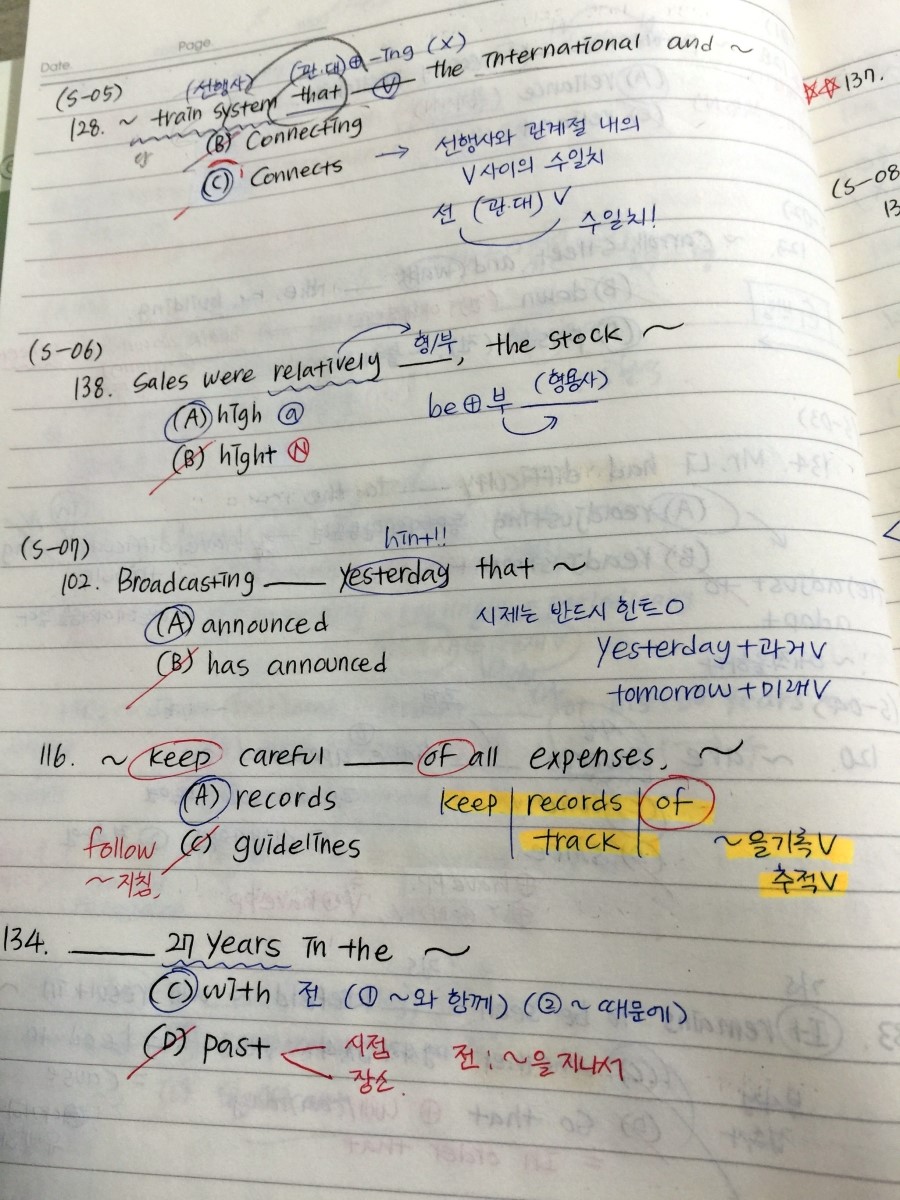 Date. Page.
(S-05)
(선행사) (관.대)⊕-ing (X)
128. ~ train system that ⓥ the International and ~
(B) Connecting
(C) Connects → 선행사와 관계절 내의
V 사이의 수일치
선 (관.대) V 수일치!
(S-06)
형/부
138. Sales were relatively ____, the stock ~
(A) high ⓐ be ⊕ 부 (형용사)
(B) hight Ⓝ
(S-07)
hint!!
102. Broadcasting ____ yesterday that ~
(A) announced 시제는 반드시 힌트O
(B) has announced yesterday + 과거V
tomorrow + 미래V
116. ~ keep careful ____ of all expenses, ~
(A) records keep records of
follow (C) guidelines track ~을 기록V
~지침, 추적V
134. ____ 27 years in the ~
(C) with 전 (① ~와 함께) (② ~ 때문에)
(D) past 시점 전: ~을 지나서
장소
137.
(S-08